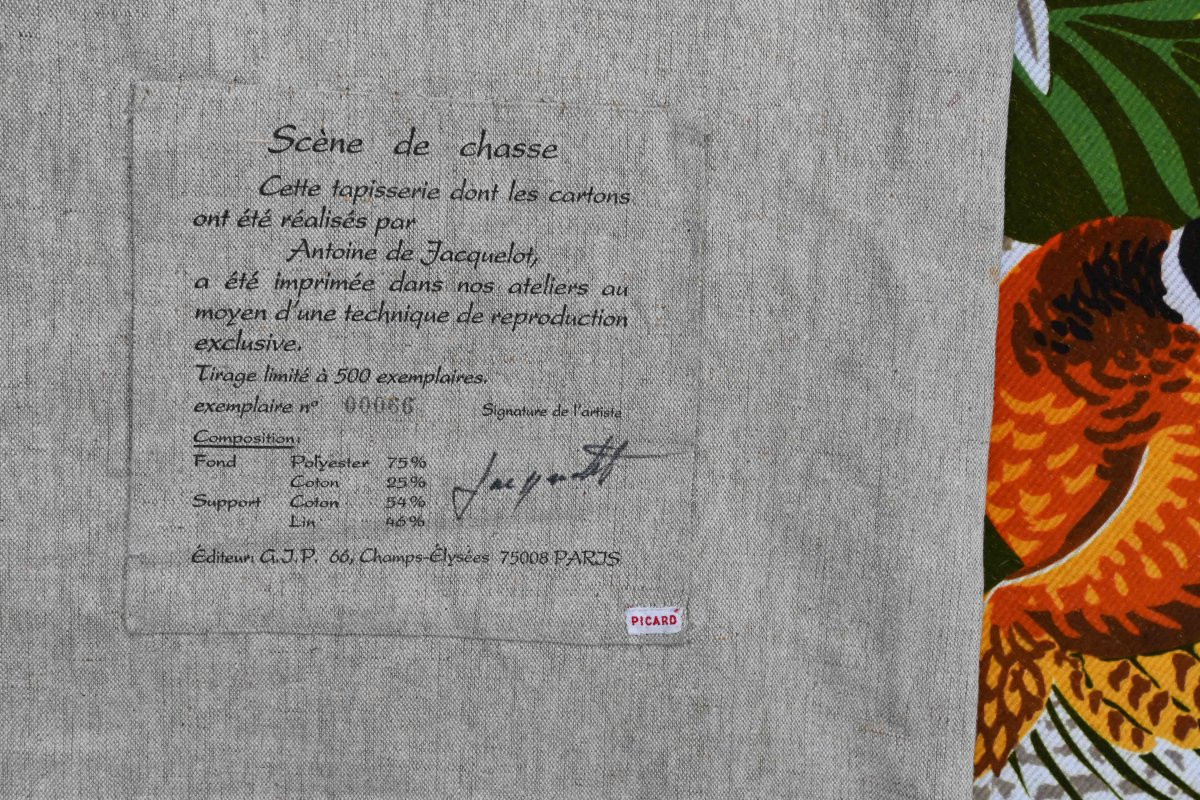 Scène de chasse
Cette tapisserie dont les cartons
ont été réalisés par
Antoine de Jacquelot,
a été imprimée dans nos ateliers au
moyen d'une technique de reproduction
exclusive.
Tirage limité à 500 exemplaires.
exemplaire n° 00066 Signature de l'artiste
Composition:
Fond Polyester 75%
Coton 25%
Support Coton 54%
Lin 46%
Jacquelot
Éditeur: G.J.P. 66, Champs-Élysées 75008 PARIS
PICARD